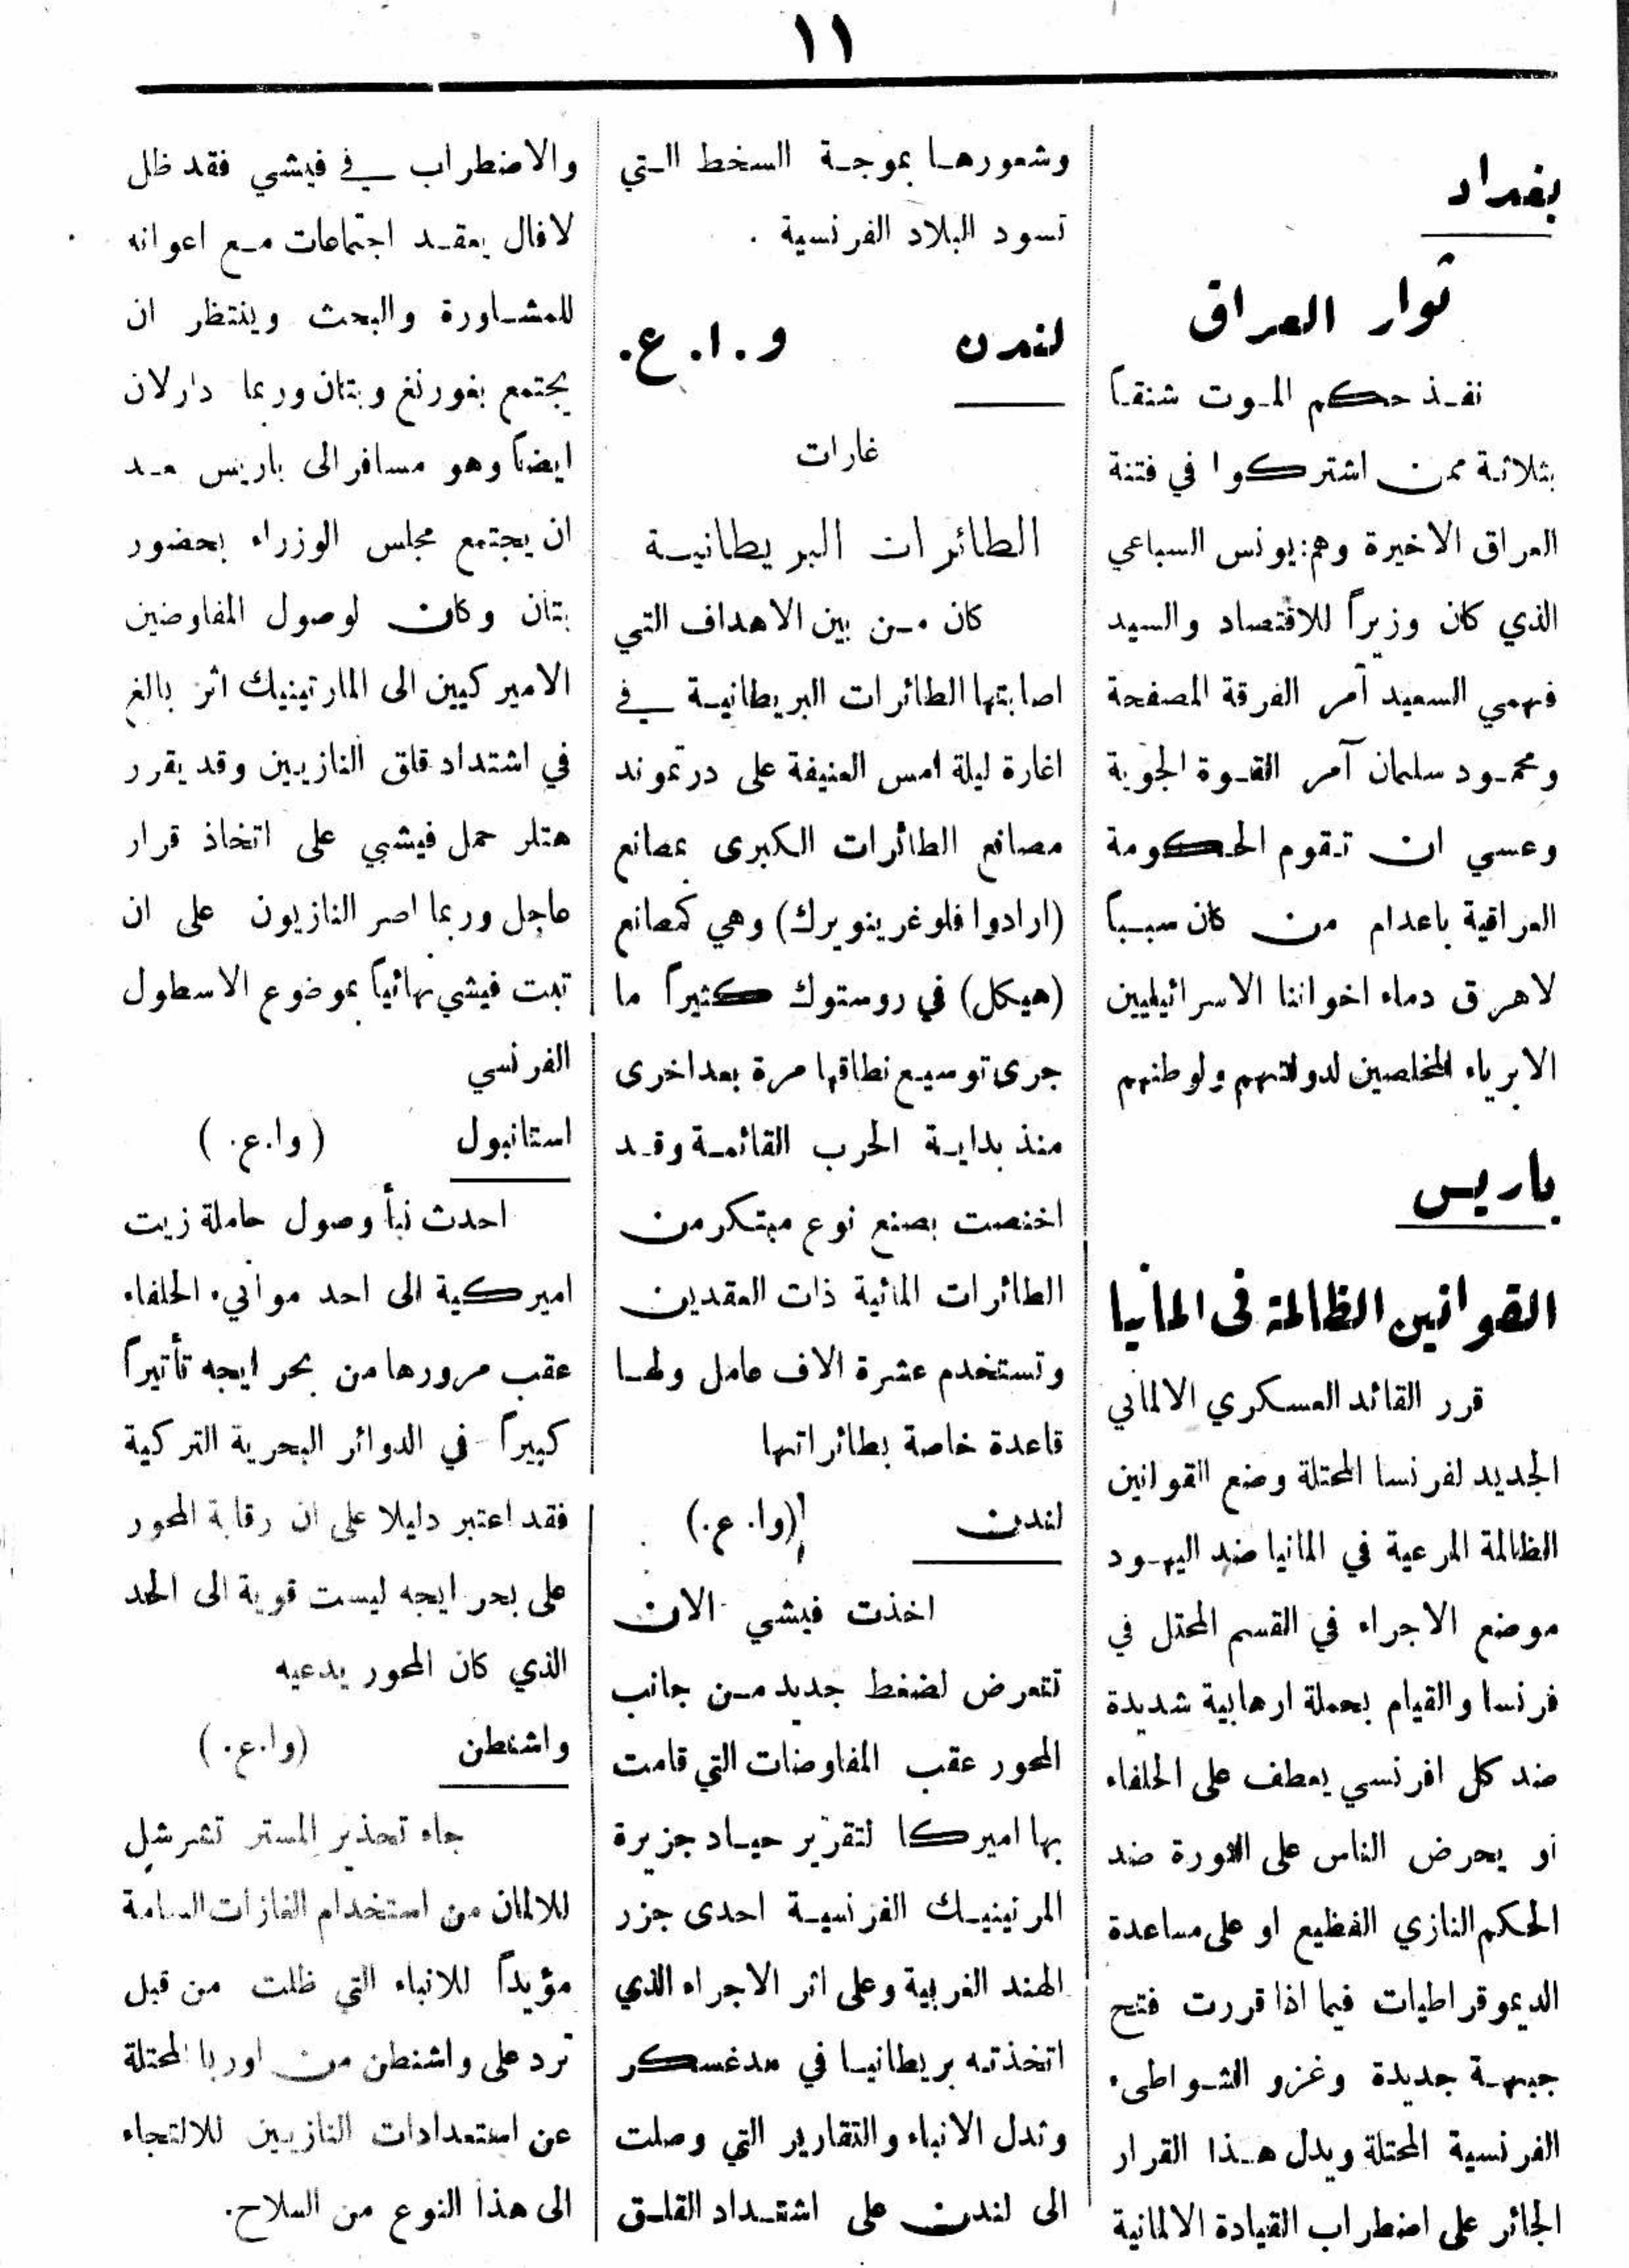 ١١
بغداد
ثوار العراق
نفذ حكم الموت شنقاً
بثلاثة ممن اشتركوا في فتنة
العراق الاخيرة وهم: يونس السباعي
الذي كان وزيراً للاقتصاد والسيد
فهمي السعيد آمر الفرقة المصفحة
ومحمود سلمان آمر القوة الجوية
وعسى ان تقوم الحكومة
العراقية باعدام من كان سبباً
لاهرق دماء اخواننا الاسرائيليين
الابرياء المخلصين لدولتهم ولوطنهم
باريس
القوانين الظالمة في المانيا
قرر القائد العسكري الالماني
الجديد لفرنسا المحتلة وضع القوانين
الظالمة المرعية في المانيا ضد اليهود
موضع الاجراء في القسم المحتل في
فرنسا والقيام بحملة ارهابية شديدة
ضد كل افرنسي يعطف على الحلفاء
او يحرض الناس على الثورة ضد
الحكم النازي الفظيع او على مساعدة
الديموقراطيات فيما اذا قررت فتح
جبهة جديدة وغزو الشواطىء
الفرنسية المحتلة ويدل هذا القرار
الجائر على اضطراب القيادة الالمانية
وشعورها بموجة السخط التي
تسود البلاد الفرنسية .
لندن و.ا.ع.
غارات
الطائرات البريطانية
كان من بين الاهداف التي
اصابتها الطائرات البريطانية في
اغارة ليلة امس العنيفة على درتموند
مصافع الطائرات الكبرى بمصانع
(ارادوا فلوغرينوبرك) وهي كمصانع
(هيكل) في روستوك كثيراً ما
جرى توسيع نطاقها مرة بعد اخرى
منذ بداية الحرب القائمة وقد
اختصت بصنع نوع مبتكر من
الطائرات المائية ذات العقدين
وتستخدم عشرة الاف عامل ولها
قاعدة خاصة بطائراتها
لندن (وا. ع.)
اخذت فيشي الان
تتعرض لضغط جديد من جانب
المحور عقب المفاوضات التي قامت
بها اميركا لتقرير حياد جزيرة
المرتينيك الفرنسية احدى جزر
الهند الغربية وعلى اثر الاجراء الذي
اتخذته بريطانيا في مدغسكر
وتدل الانباء والتقارير التي وصلت
الى لندن على اشتداد القلق
والاضطراب في فيشي فقد ظل
لافال يعقد اجتماعات مع اعوانه
للمشاورة والبحث وينتظر ان
يجتمع بغورنغ وبتان وربما دارلان
ايضاً وهو مسافر الى باريس بعد
ان يجتمع مجلس الوزراء بحضور
بتان وكان لوصول المفاوضين
الاميركيين الى المارتينيك اثر بالغ
في اشتداد قلق النازيين وقد يقرر
هتلر حمل فيشي على اتخاذ قرار
عاجل وربما اصر النازيون على ان
تبت فيشي نهائياً بموضوع الاسطول
الفرنسي
استانبول (وا.ع.)
احدث نبأ وصول حاملة زيت
اميركية الى احد موانىء الحلفاء
عقب مرورها من بحر ايجه تأثيراً
كبيراً في الدوائر البحرية التركية
فقد اعتبر دليلا على ان رقابة المحور
على بحر ايجه ليست قوية الى الحد
الذي كان المحور يدعيه
واشنطن (وا.ع.)
جاء تحذير المستر تشرشل
للالمان من استخدام الغازات السامة
مؤيداً للانباء التي ظلت من قبل
ترد على واشنطن من اوربا المحتلة
عن استعدادات النازيين للالتجاء
الى هذا النوع من السلاح.